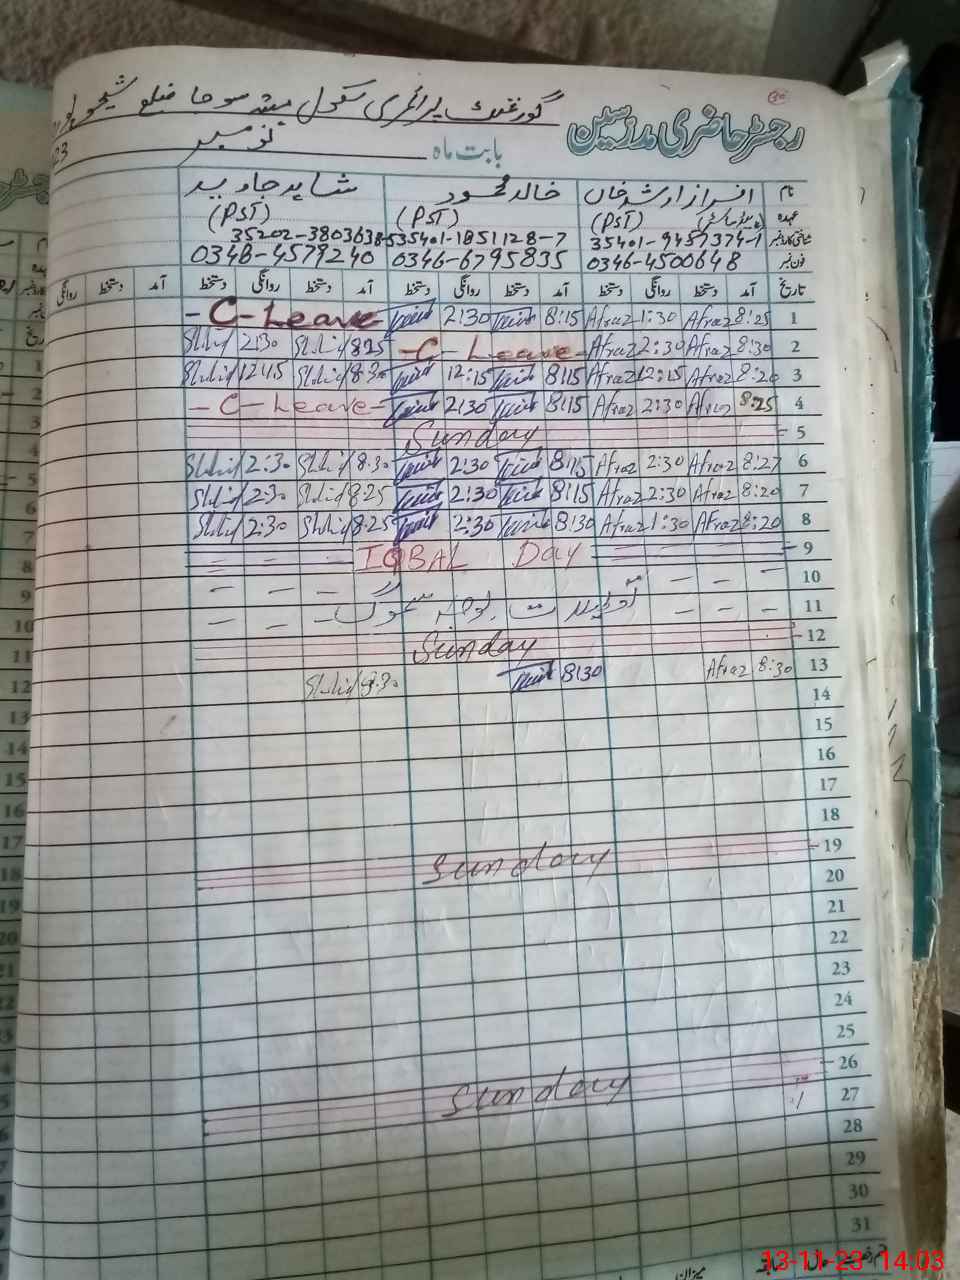 رجسٹر حاضری مدرسین
گورنمنٹ پرائمری سکول
بابت ماہ نومبر 23
نام افراز ارشد خاں خالد محمود شاہد جاوید
عہدہ (PST) (PST) (PST)
شناختی کارڈ نمبر 35401-9457374-1 35401-1851128-7 35202-3803638-5
فون نمبر 0346-4500648 0346-6795835 0348-4579240
تاریخ آمد دستخط روانگی دستخط آمد دستخط روانگی دستخط آمد دستخط روانگی دستخط آمد دستخط روانگی
1 8:25 Afraz 1:30 Afraz 8:15 2:30 -C-Leave-
2 8:30 Afraz 2:30 Afraz -C-Leave- 8:25 Shahid 2:30 Shahid
3 8:20 Afraz 12:15 Afraz 8:15 12:15 8:30 Shahid 12:15 Shahid
4 8:25 Afraz 2:30 Afraz 8:15 2:30 -C-Leave-
5 Sunday
6 8:27 Afraz 2:30 Afraz 8:15 2:30 8:30 Shahid 2:30 Shahid
7 8:20 Afraz 2:30 Afraz 8:15 2:30 8:25 Shahid 2:30 Shahid
8 8:20 Afraz 1:30 Afraz 8:30 2:30 8:25 Shahid 2:30 Shahid
9 IQBAL Day
10
11 تعطیلات بوجہ سموگ
12 Sunday
13 8:30 Afraz 8:30 8:30 Shahid
14
15
16
17
18
19 Sunday
20
21
22
23
24
25
26 Sunday
27
28
29
30
31
میزان
13-11-23 14:03